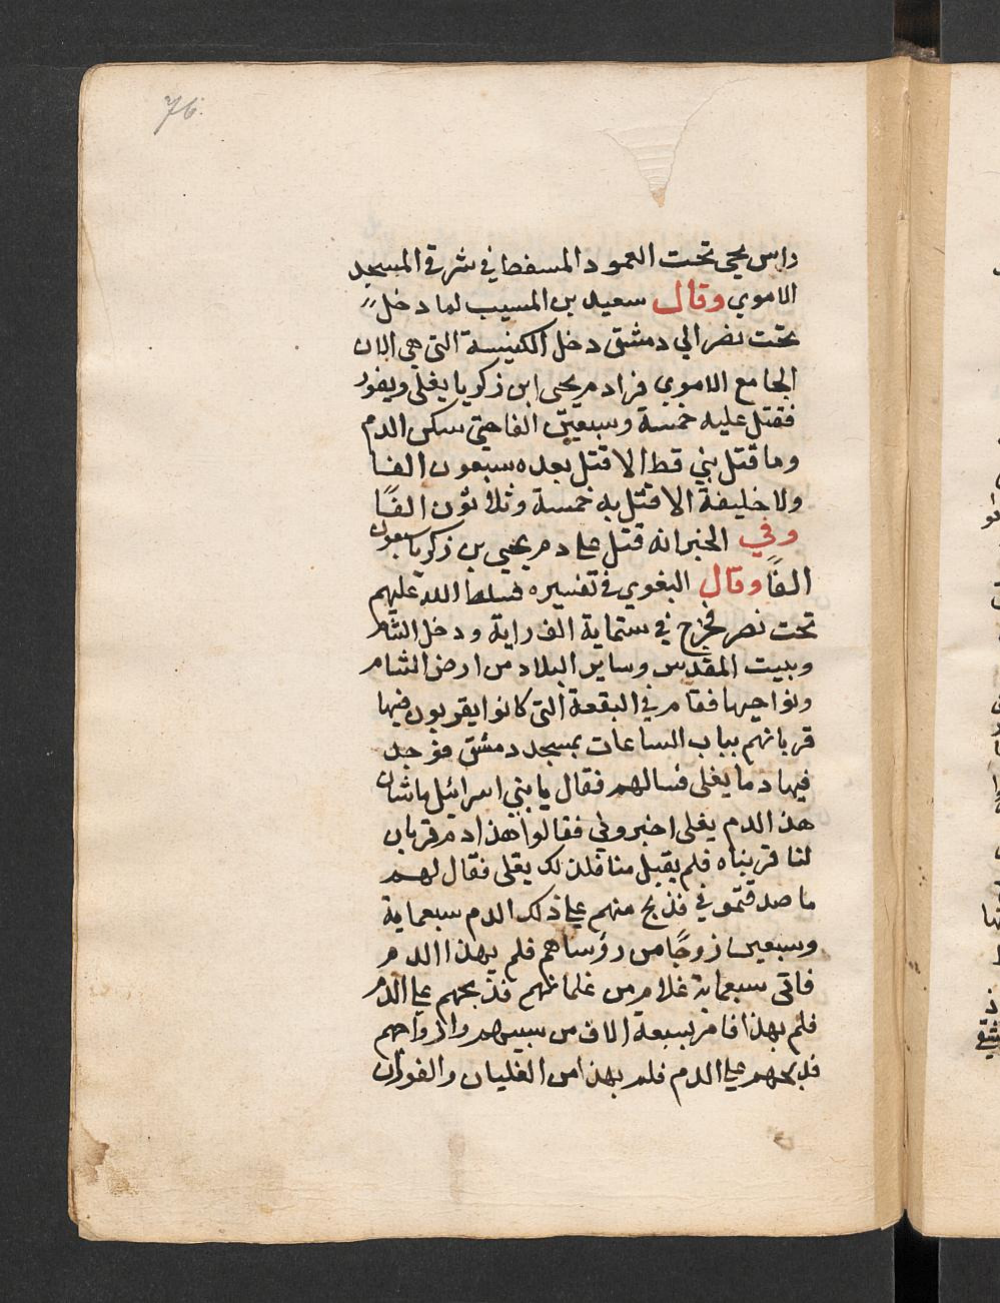 76.
راس يحيى تحت العمود المسفط في شرقي المسجد
الاموي وقال سعيد بن المسيب لما دخل
بخت نصر الي دمشق دخل الكنيسة التي هي الان
الجامع الاموي فراد م يحيى ابن زكريا يغلي ويفور
فقتل عليه خمسة وسبعين الفا حتي سكن الدم
وما قتل نبي قط الا قتل بعده سبعون الفا
ولا خليفة الا قتل به خمسة وثلاثون الفًا
وفي الخبر انه قتل علي دم يحيى بن زكريا سبعون
الفًا وقال البغوي في تفسيره فسلط الله عليهم
بخت نصر فخرج في ستماية الف راية ودخل الشام
وبيت المقدس وساير البلاد من ارض الشام
ونواحيها فقام في البقعة التي كانوا يقربون فيها
قربانهم بباب الساعات بمسجد دمشق فوجد
فيها دما يغلي فسالهم فقال يا بني اسرائيل ما شان
هذا الدم يغلي اخبروني فقالوا هذا دم قربان
لنا قربناه فلم يقبل منا فلذلك يغلي فقال لهم
ما صدقتموني فذبح منهم علي ذلك الدم سبعماية
وسبعين زوجًا من رؤساهم فلم يهذا الدم
فاتى سبعماية غلام من غلمانهم فذبحهم علي الدم
فلم يهذا فامر بسبعة الاف من سبيهم وازواجهم
فذبحهم علي الدم فلم يهذا من الغليان والفوران